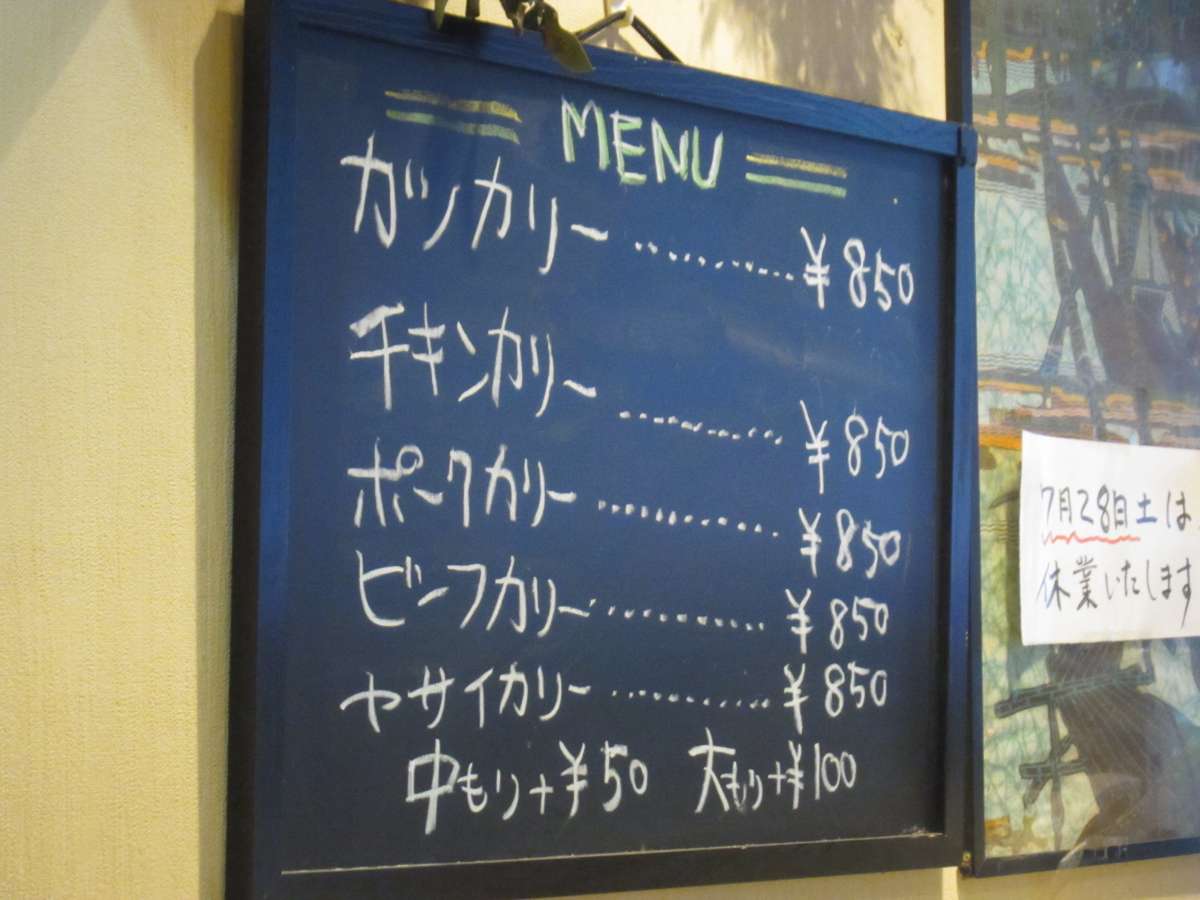 MENU
ガツカリー ........... ¥850
チキンカリー ........... ¥850
ポークカリー ........... ¥850
ビーフカリー ........... ¥850
ヤサイカリー ........... ¥850
中もり+¥50 大もり+¥100
7月28日土は
休業いたします